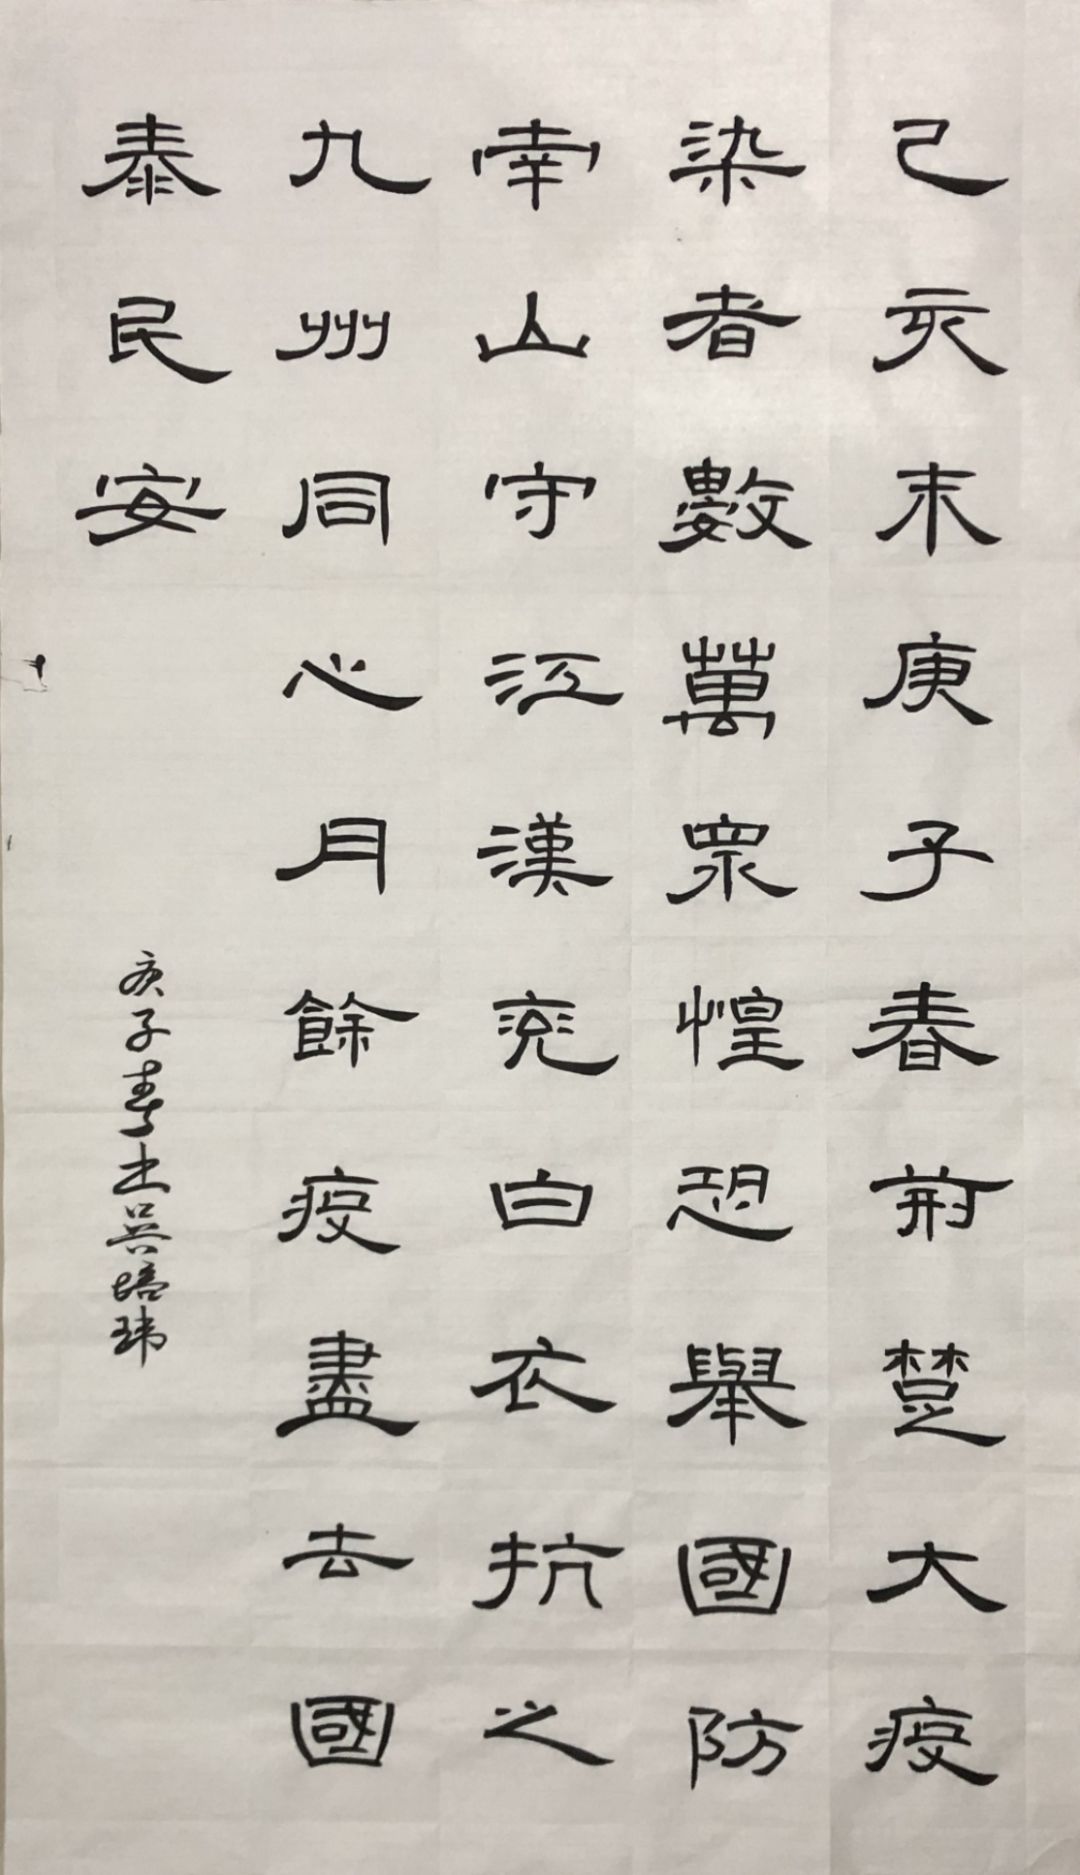 己亥末庚子春荊楚大疫
染者數萬眾惶恐舉國防
幸山守江漢兖白衣抗之
九州同心月餘疫盡去國
泰民安
庚子春士吳培瑋